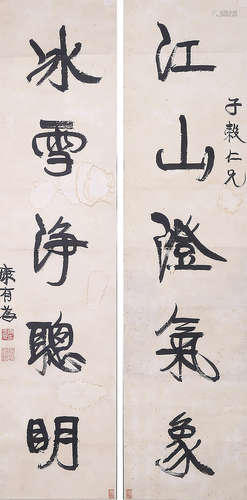 子穀仁兄
江山澄氣象
冰雪淨聰明
康有為